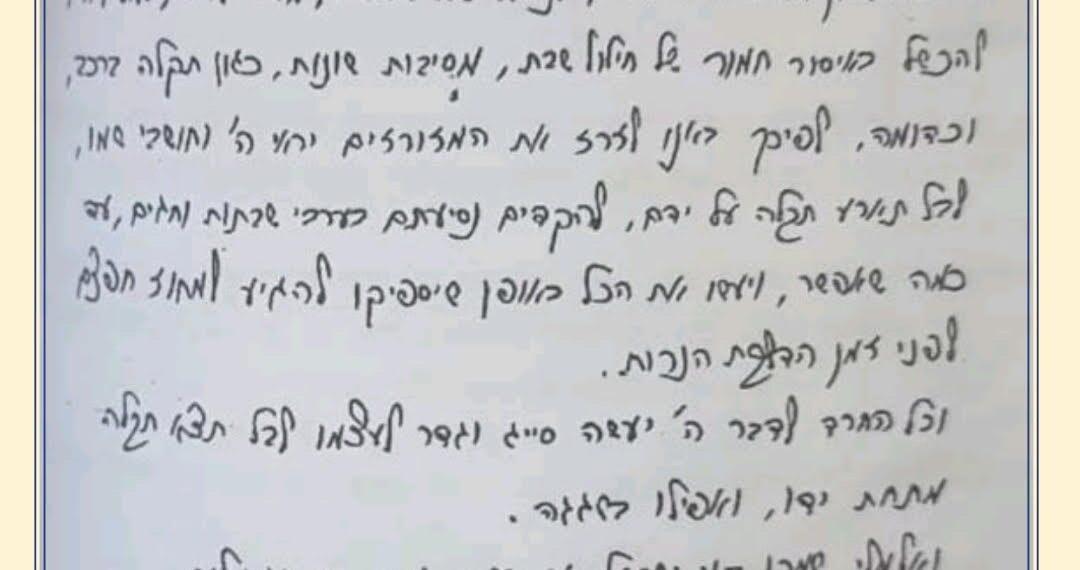 להכשל באיסור חמור של חילול שבת, מסיבות שונות, כגון תקלה ברכב,
וכדומה. לפיכך באנו לזרז את המזורזים יראי ה' וחושבי שמו,
לבל תארע תקלה על ידם, להקדים נסיעתם בערבי שבתות וחגים, עד
כמה שאפשר, ויעשו את הכל באופן שיספיקו להגיע למחוז חפצם
לפני זמן הדלקת הנרות.
וכל החרד לדבר ה' יעשה סייג וגדר לעצמו לבל תצא תקלה
מתחת ידו, ואפילו בשגגה.